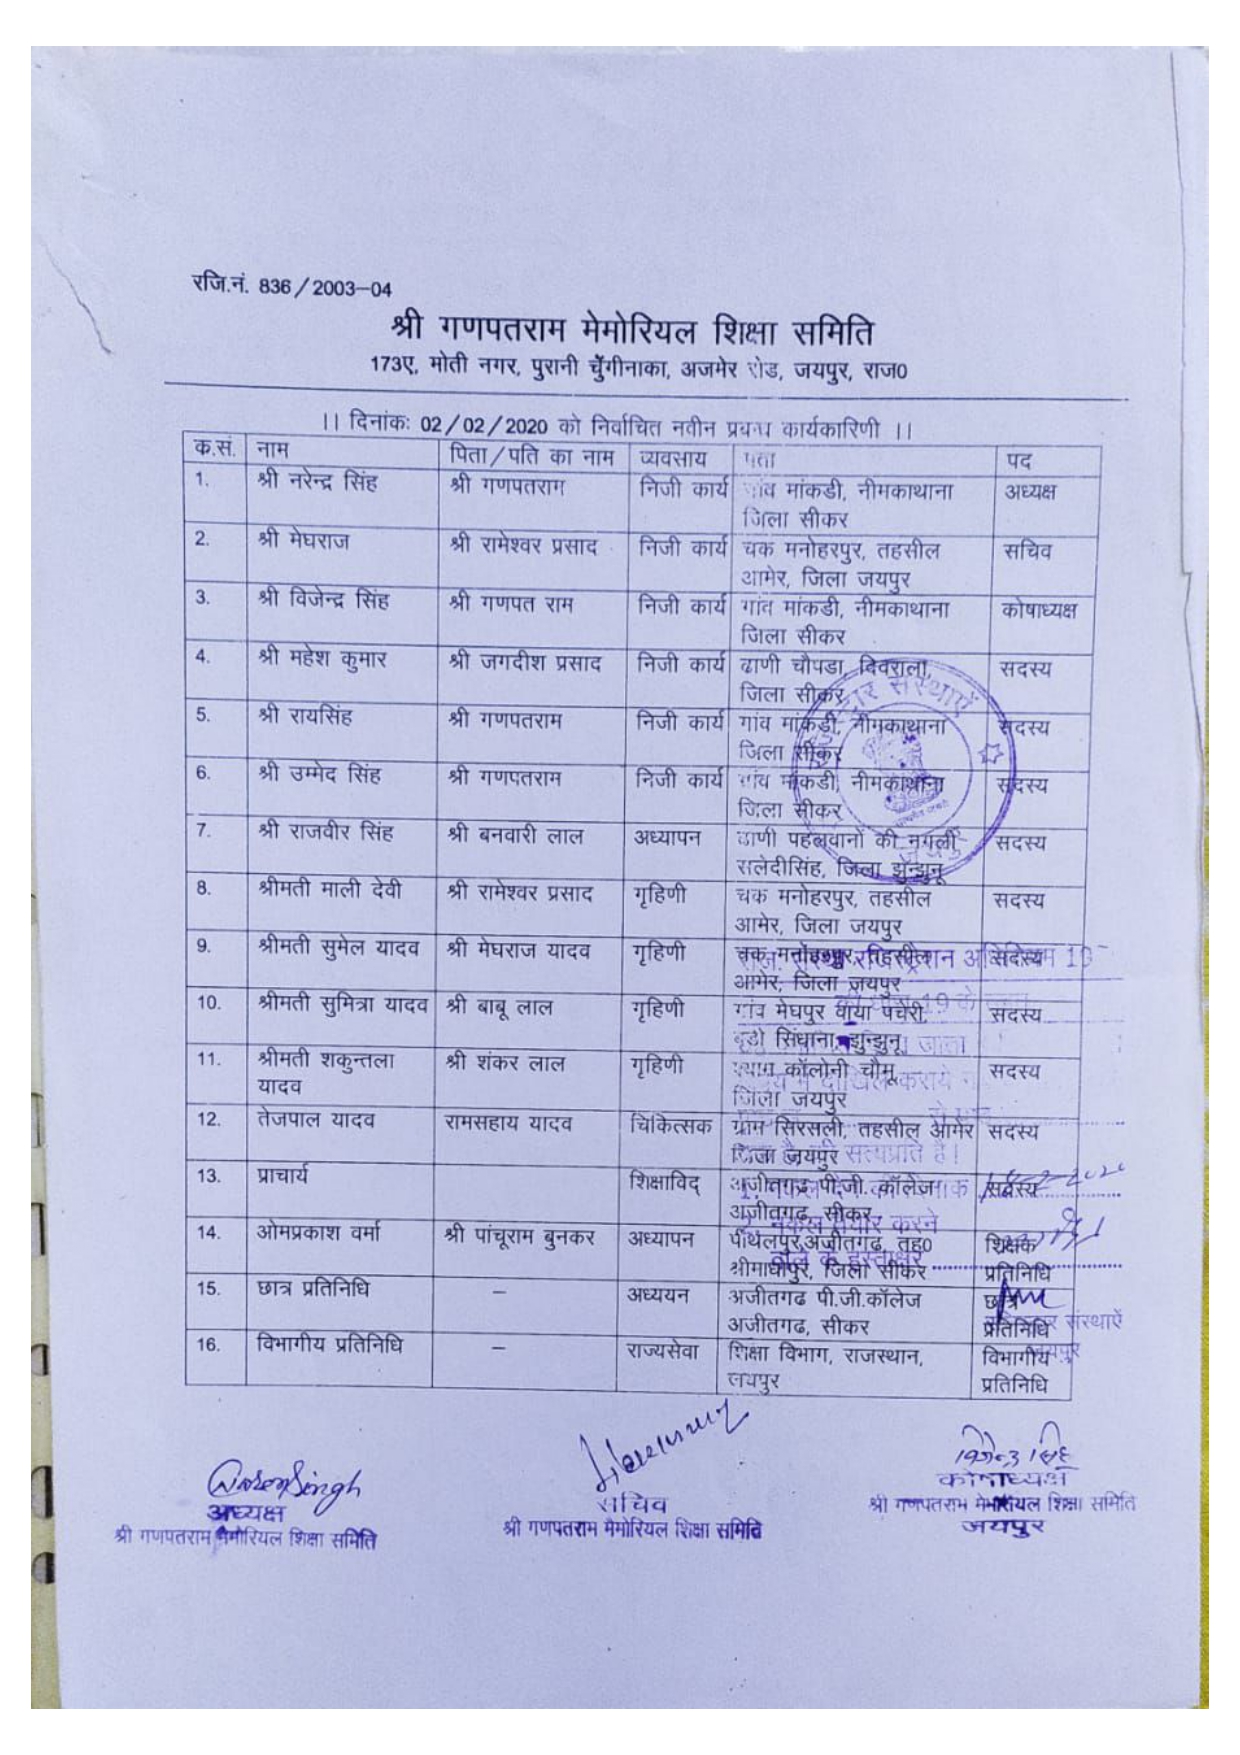 रजि.नं. 836/2003–04
श्री गणपतराम मेमोरियल शिक्षा समिति
173ए, मोती नगर, पुरानी चुँगीनाका, अजमेर रोड, जयपुर, राज0
।। दिनांकः 02/02/2020 को निर्वाचित नवीन प्रबन्ध कार्यकारिणी ।।
क.सं. नाम पिता/पति का नाम व्यवसाय पता पद
1. श्री नरेन्द्र सिंह श्री गणपतराम निजी कार्य गांव मांकडी, नीमकाथाना अध्यक्ष
जिला सीकर
2. श्री मेघराज श्री रामेश्वर प्रसाद निजी कार्य चक मनोहरपुर, तहसील सचिव
आमेर, जिला जयपुर
3. श्री विजेन्द्र सिंह श्री गणपत राम निजी कार्य गांव मांकडी, नीमकाथाना कोषाध्यक्ष
जिला सीकर
4. श्री महेश कुमार श्री जगदीश प्रसाद निजी कार्य ढाणी चौपडा, दिवराला, सदस्य
जिला सीकर
5. श्री रायसिंह श्री गणपतराम निजी कार्य गांव मांकडी, नीमकाथाना सदस्य
जिला सीकर
6. श्री उम्मेद सिंह श्री गणपतराम निजी कार्य गांव मांकडी, नीमकाथाना सदस्य
जिला सीकर
7. श्री राजवीर सिंह श्री बनवारी लाल अध्यापन ढाणी पहलवानों की नगली सदस्य
सलेदीसिंह, जिला झुन्झुनू
8. श्रीमती माली देवी श्री रामेश्वर प्रसाद गृहिणी चक मनोहरपुर, तहसील सदस्य
आमेर, जिला जयपुर
9. श्रीमती सुमेल यादव श्री मेघराज यादव गृहिणी चक मनोहरपुर, तहसील सदस्य
आमेर, जिला जयपुर
10. श्रीमती सुमित्रा यादव श्री बाबू लाल गृहिणी गांव मेघपुर वाया पचेरी सदस्य
सिंघाना, झुन्झुनू
11. श्रीमती शकुन्तला श्री शंकर लाल गृहिणी कॉलोनी चौमू, सदस्य
यादव जिला जयपुर
12. तेजपाल यादव रामसहाय यादव चिकित्सक ग्राम सिरसली, तहसील आमेर सदस्य
जिला जयपुर
13. प्राचार्य शिक्षाविद् अजीतगढ पी.जी. कॉलेज सदस्य
अजीतगढ, सीकर
14. ओमप्रकाश वर्मा श्री पांचूराम बुनकर अध्यापन पीथलपुर,अजीतगढ, तह0 शिक्षक
श्रीमाधोपुर, जिला सीकर प्रतिनिधि
15. छात्र प्रतिनिधि – अध्ययन अजीतगढ पी.जी.कॉलेज छात्र
अजीतगढ, सीकर प्रतिनिधि
16. विभागीय प्रतिनिधि – राज्यसेवा शिक्षा विभाग, राजस्थान, विभागीय
जयपुर प्रतिनिधि
संस्थाऐं
जयपुर
विजेन्द्र सिंह
अध्यक्ष सचिव कोषाध्यक्ष
श्री गणपतराम मैमोरियल शिक्षा समिति श्री गणपतराम मैमोरियल शिक्षा समिति श्री गणपतराम मेमोरियल शिक्षा समिति
जयपुर